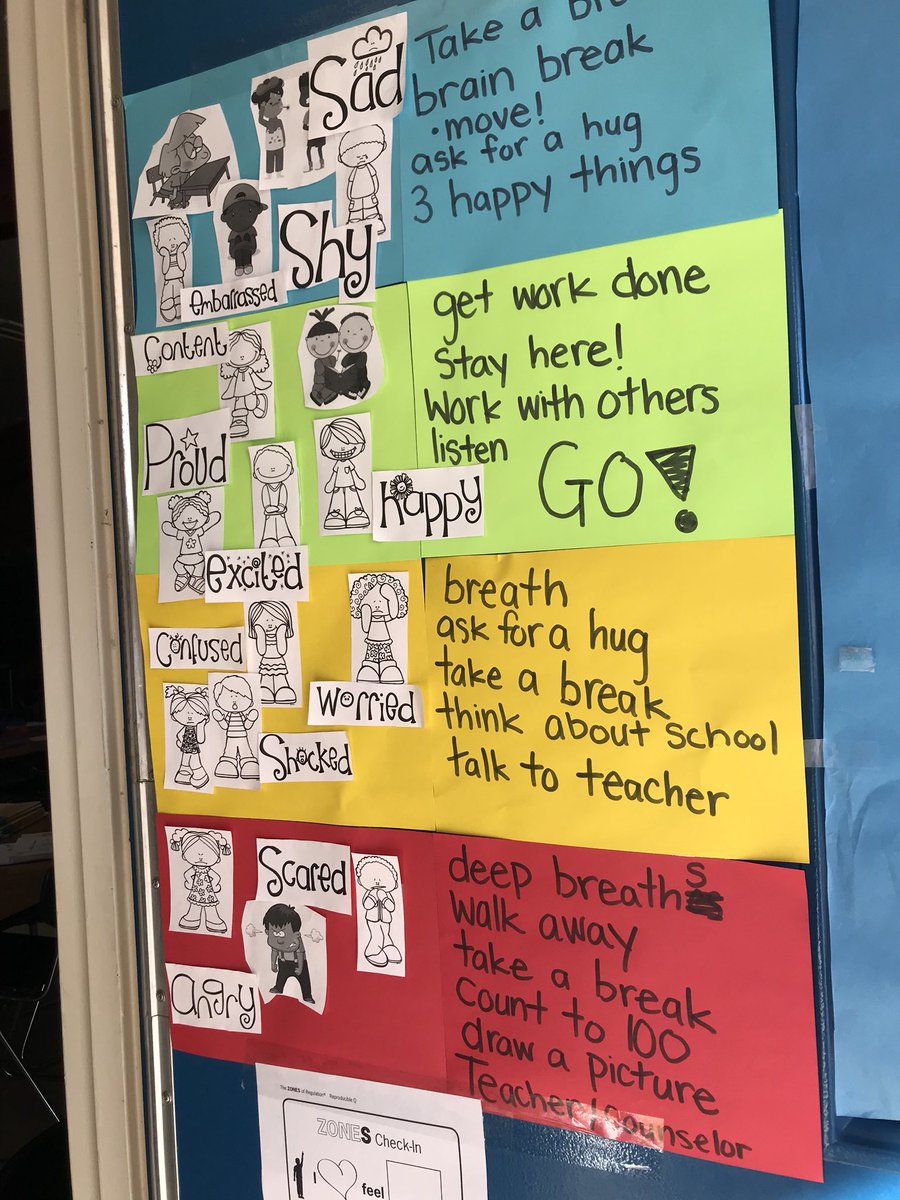 Sad
Shy
embarrassed
Take a
brain break
• move!
ask for a hug
3 happy things
Content
Proud
happy
excited
get work done
Stay here!
Work with others
listen
GO!
Confused
Worried
Shocked
breath
ask for a hug
take a break
think about school
talk to teacher
Scared
Angry
deep breaths
walk away
take a break
Count to 100
draw a picture
Teacher/counselor
The ZONES of Regulation® Reproducible Q
ZONES Check-In
I
feel